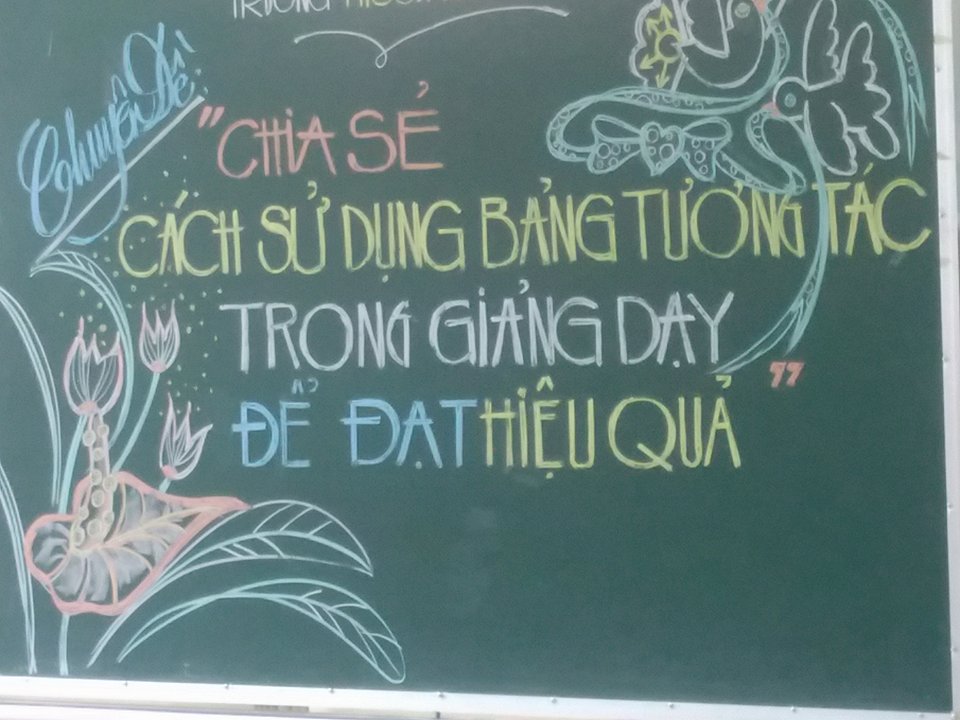 TRƯỜNG
Chuyên Đề
"CHIA SẺ
CÁCH SỬ DỤNG BẢNG TƯƠNG TÁC
TRONG GIẢNG DẠY
ĐỂ ĐẠT HIỆU QUẢ"